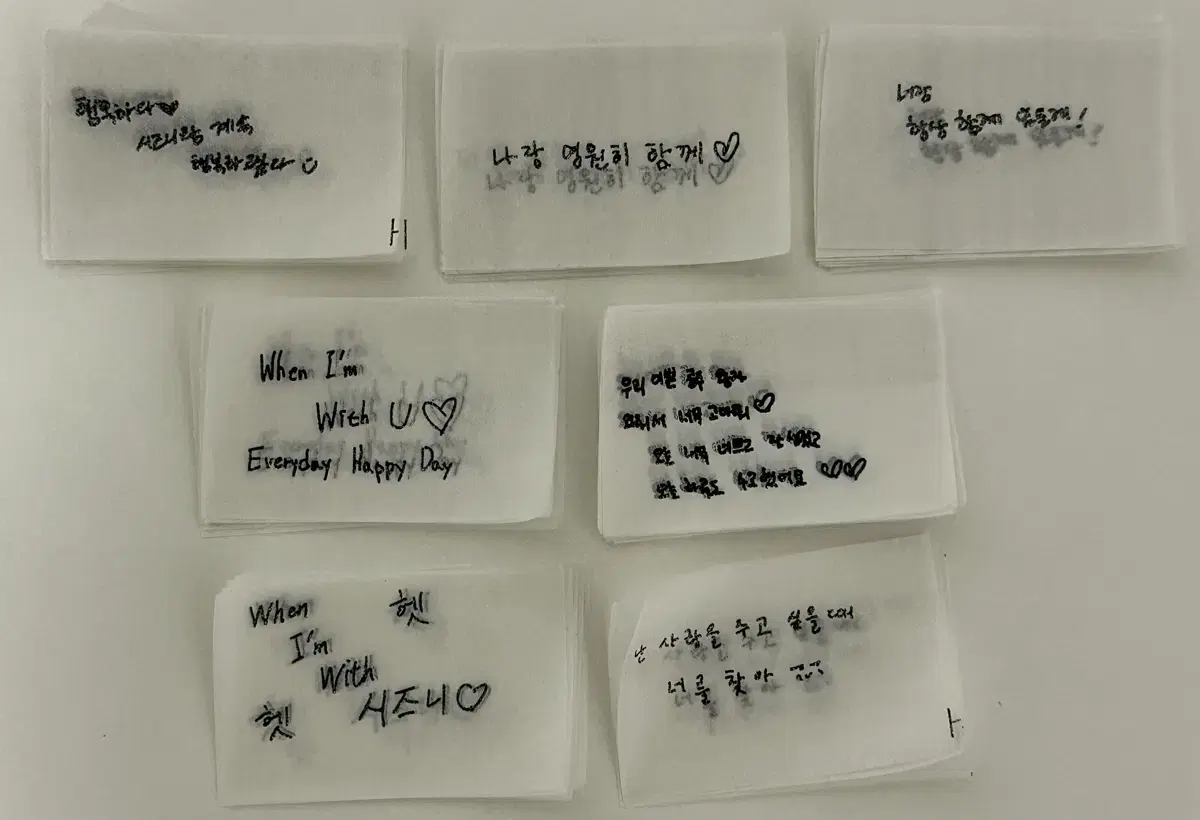 행복하다♥
시즈니랑 계속
행복하고싶다
H
나랑 영원히 함께♡
너랑
항상 함께 있을게!
When I'm
With U♡
Everyday Happy Day
우리 이쁜
너무 고마워♡
오늘 너무
오늘 하루도 수고했어요 ♡♡
When 헷
I'm
With
헷 시즈니♡
난 사랑을 주고 싶을 때
너를 찾아